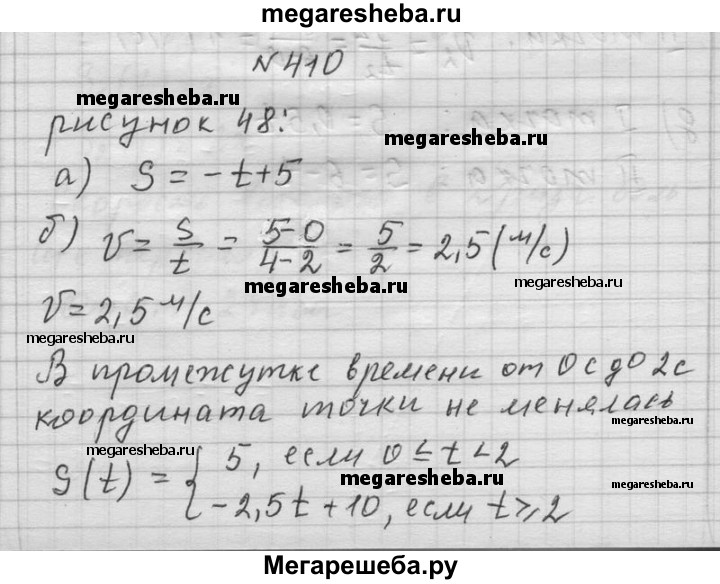 megaresheba.ru
№410
megaresheba.ru
рисунок 48:
megaresheba.ru
а) S = -t+5
б) V = S/t = (5-0)/(4-2) = 5/2 = 2,5 (м/с)
megaresheba.ru
megaresheba.ru
V = 2,5 м/с
megaresheba.ru
В промежутке времени от 0с до 2с
координата точки не менялась
megaresheba.ru
megaresheba.ru
S(t) = { 5, если 0 ≤ t < 2
megaresheba.ru
megaresheba.ru
-2,5t + 10, если t ≥ 2
Мегарешеба.ру